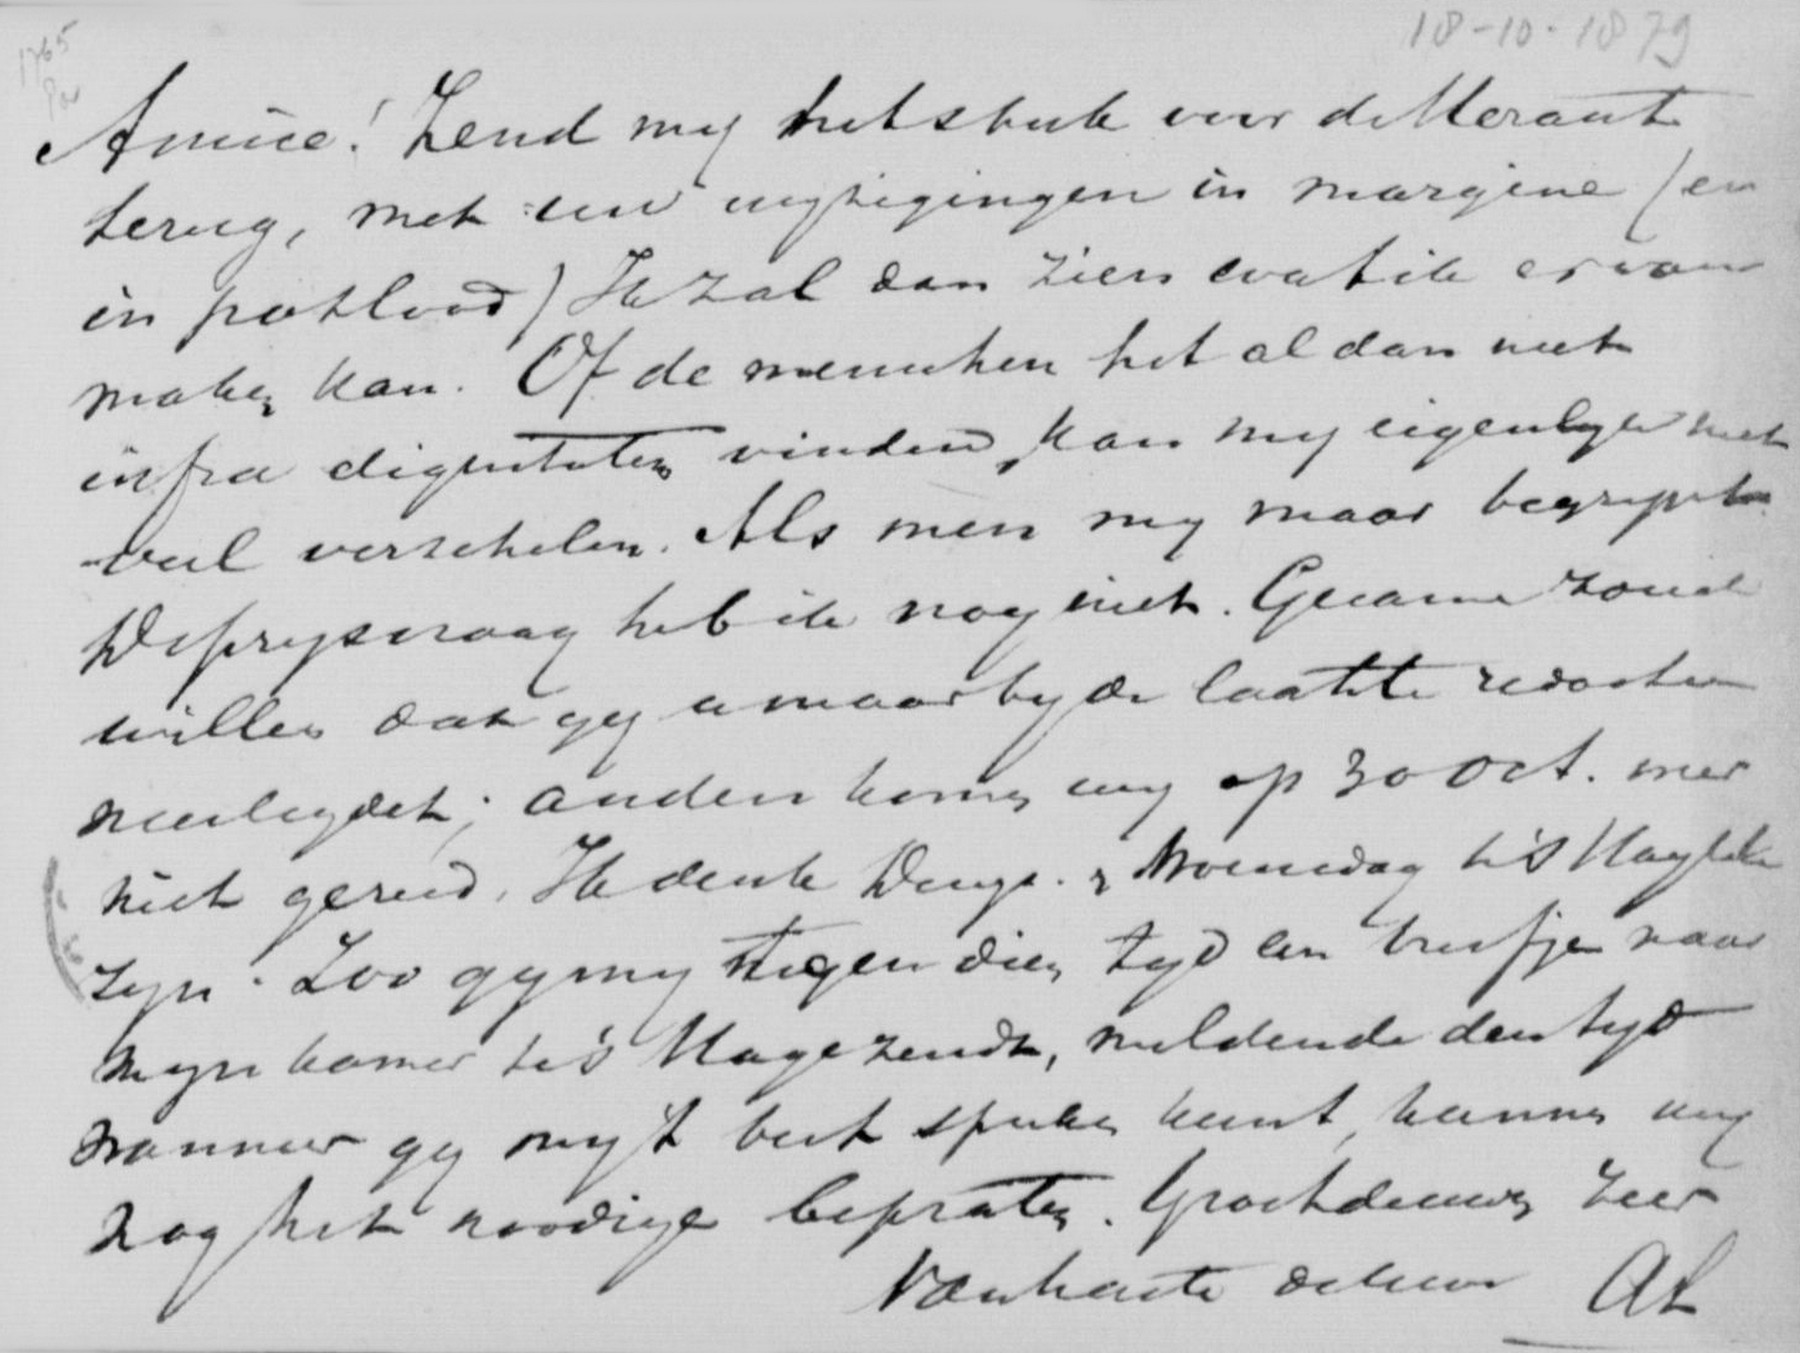 18-10-1879
1765
Amice! Zend my het stuk voor de Veraut
terug, met uw wyzigingen in margine (en
in potlood) Ik zal dan zien wat ik ervan
maken kan. Of de menschen het al dan niet
infra dignitatem vinden, kan my eigenlyk niet
veel verschelen. Als men my maar begrypt.
De prysvraag heb ik nog niet. Gaarne zoud
willen dat gy u maar by de laatste redactie
neerlegdet; anders komen wy op 30 Oct. meer
niet gereed. Ik denk Dinsd. & Woensdag te 's Hage te
zyn. Zoo gy my tegen dien tyd een briefje naar
myn kamer te 's Hage zendt, meldende den tyd
wanneer gy my 't best spreken kunt, kunnen wy
nog het noodige bepraten. Groet de uwen zeer
Van harte de uwe AL